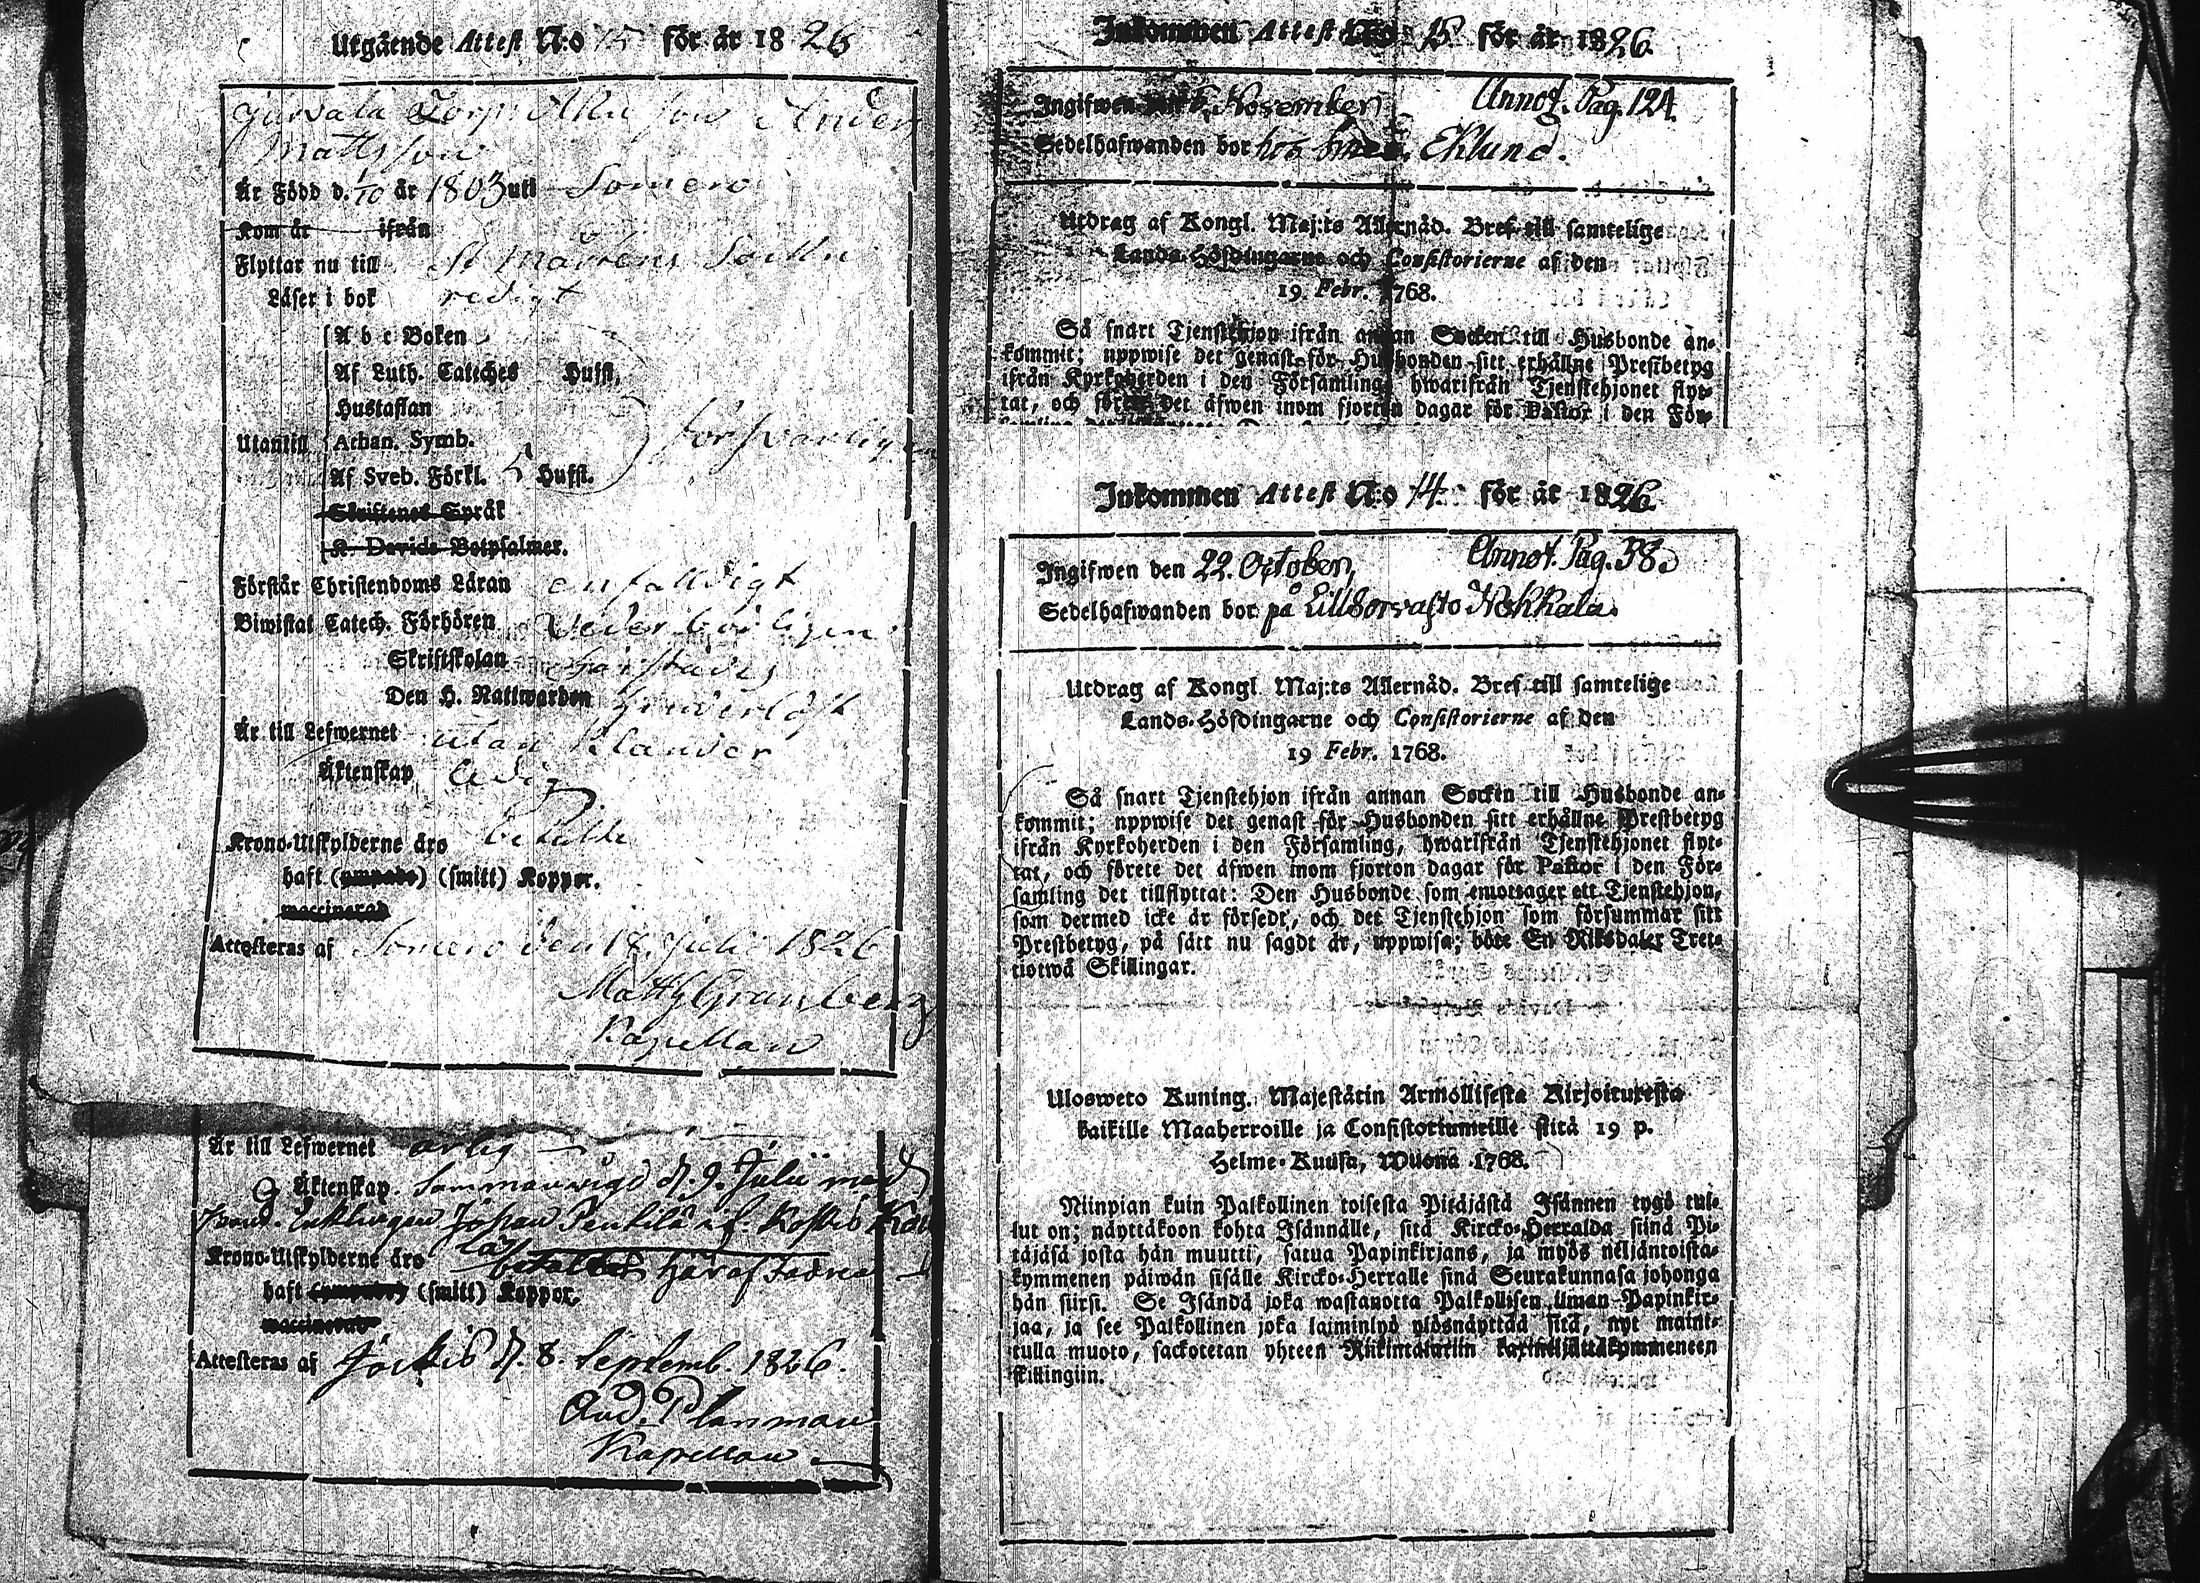 Utgående Attest N:o 15 för år 1826
Torp Anders
Mattsson
Är Född d. 1/10 år 1803 uti Somero
Kom år ifrån
Flyttar nu till St Mårtens Sockn
Läser i bok redigt
A b c Boken
Af Luth. Cateches Hufst.
Hustaflan
Utantill Athan. Symb. försvarligen
Af Sveb. Förkl. 5 Hufst.
Skriftenes Språk
K Davids Botpsalmer.
Förstår Christendoms Läran enfalldigt
Biwistat Catech. Förhören Vederbörligen
Skriftskolan
Den H. Nattwarden
Är till Lefwernet utan Klander
Äktenskap Ledig
Krono-Utskylderne äro betalde
haft (ympade) (smitt) Koppor.
vaccinerad
Attesteras af Somero den 17 Julii 1826
Matts Granberg
Kapellan
Är till Lefwernet ärlig
Äktenskap. Sammanvigd d. 9. Julii med
Enklingen Johan Pentilä
Krono-Utskylderne äro betalte
haft (ympade) (smitt) Koppor.
vaccinerad
Attesteras af Jockis d. 8. Septemb. 1826.
And. Planman
Kapellan
Inkommen Attest N:o 15 för år 1826.
Ingifwen den November Annot. Pag. 124.
Sedelhafwanden bor hos Eklund.
Utdrag af Kongl. Maj:ts Allernåd. Bref till samtelige
Lands-Höfdingarne och Consistorierne af den
19. Febr. 1768.
Så snart Tjenstehjon ifrån annan Socken till Husbonde an-
kommit; uppwise det genast för Husbonden sitt erhållne Prestbetyg
ifrån Kyrkoherden i den Församling, hwarifrån Tjenstehjonet flyt-
tat, och förete det äfwen inom fjorton dagar för Pastor i den För-
Inkommen Attest N:o 14. för år 1826.
Ingifwen den 22. October, Annot. Pag. 58.
Sedelhafwanden bor på Lillsorvasto Nokkala.
Utdrag af Kongl. Maj:ts Allernåd. Bref till samtelige
Lands-Höfdingarne och Consistorierne af den
19 Febr. 1768.
Så snart Tjenstehjon ifrån annan Socken till Husbonde an-
kommit; uppwise det genast för Husbonden sitt erhållne Prestbetyg
ifrån Kyrkoherden i den Församling, hwarifrån Tjenstehjonet flyt-
tat, och förete det äfwen inom fjorton dagar för Pastor i den För-
samling det tillflyttat: Den Husbonde som emottager ett Tjenstehjon,
som dermed icke är försedt, och det Tjenstehjon som försummar sitt
Prestbetyg, på sätt nu sagdt är, uppwisa; böte En Riksdaler Tret-
tiotwå Skillingar.
Ulosweto Kuning. Majestätin Armollisesta Kirjoituxesta
kaikille Maaherroille ja Consistoriumeille siitä 19 p.
Helme-Kuusa, Wuona 1768.
Niinpian kuin Palkollinen toisesta Pitäjästä Isännen tygö tul-
lut on; näyttäkoon kohta Isännälle, sitä Kircko-Herralda siinä Pi-
täjäsä josta hän muutti, saatua Papinkirjans, ja myös neljäntoista-
kymmenen päiwän sisälle Kircko-Herralle siinä Seurakunnasa johonga
hän siirsi. Se Isändä joka wastanotta Palkollisen ilman Papinkir-
jaa, ja see Palkollinen joka laiminlyö ylösnäyttää sitä, nyt mainit-
tulla muoto, sackotetan yhteen Riikintaleriin kaximeljättäkymmeneen
skillingiin.